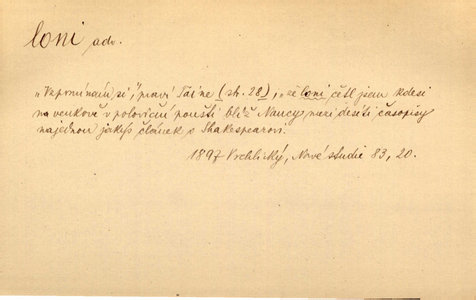 loni adv.
„Vzpomínám si," praví Taine (str. 28), „že loni četl jsem kdesi
na venkově v poloviční poušti blíž Nancy mezi desíti časopisy
najednou jakýs článek o Shakespearovi.
1897 Vrchlický, Nové studie 83, 20.